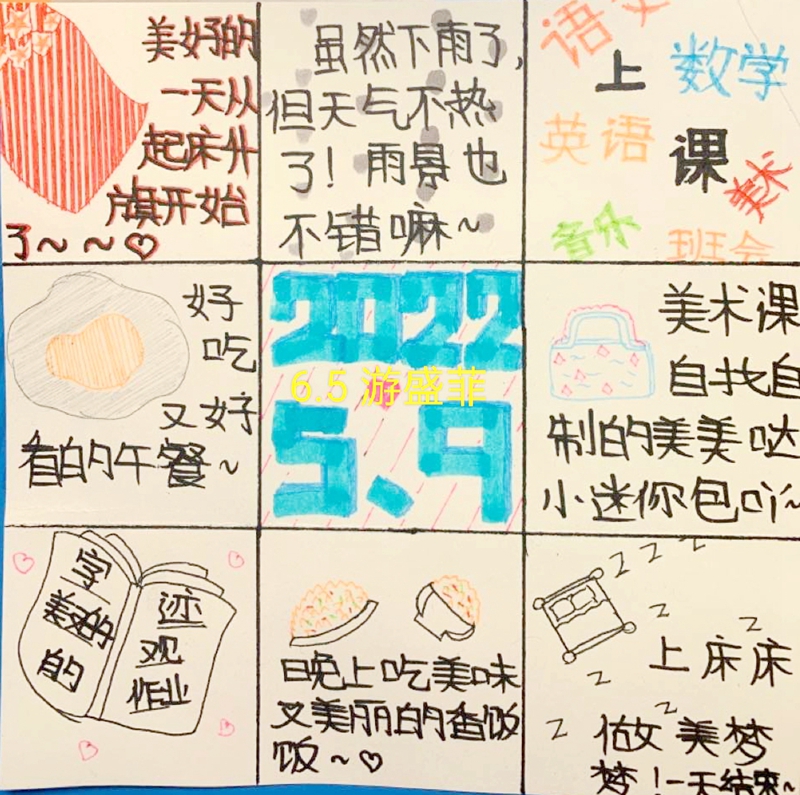 美好的
一天从
起床升
旗开始
了～～
虽然下雨了,
但天气不热
了！雨景也
不错嘛~
语文
上 数学
英语 课
美术
音乐
班会
好
吃
又好
看的午餐~
2022
6.5 游盛菲
5.9
美术课
自找自
制的美美哒
小迷你包吖~
字 迹
美好的 观
的 作业
晚上吃美味
又美丽的香饭
饭~
z z z
z z
z
z z
上床床
做美梦
梦！一天结束~